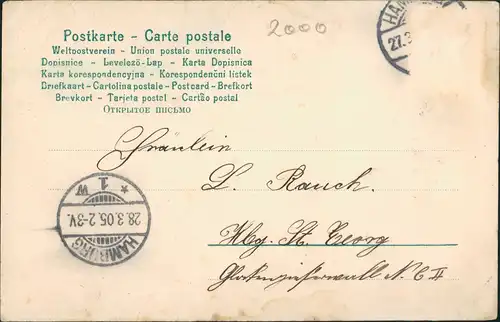 Postkarte - Carte postale
Weltpostverein - Union postale universelle
Dopisnice - Levelező-Lap - Karta Dopisnica
Karta korespondencyjna - Korespondenčni listek
Briefkaart - Cartolina postale - Postcard - Brefkort
Brevkort - Tarjeta postal - Cartão postal
Открытое письмо
2000
HAM
27.3
Fräulein
L. Rauch.
Hbg. St. Georg
Glockengießerwall N. 6 II
HAMBURG
28.3.05. 2-3V.
* 1. W